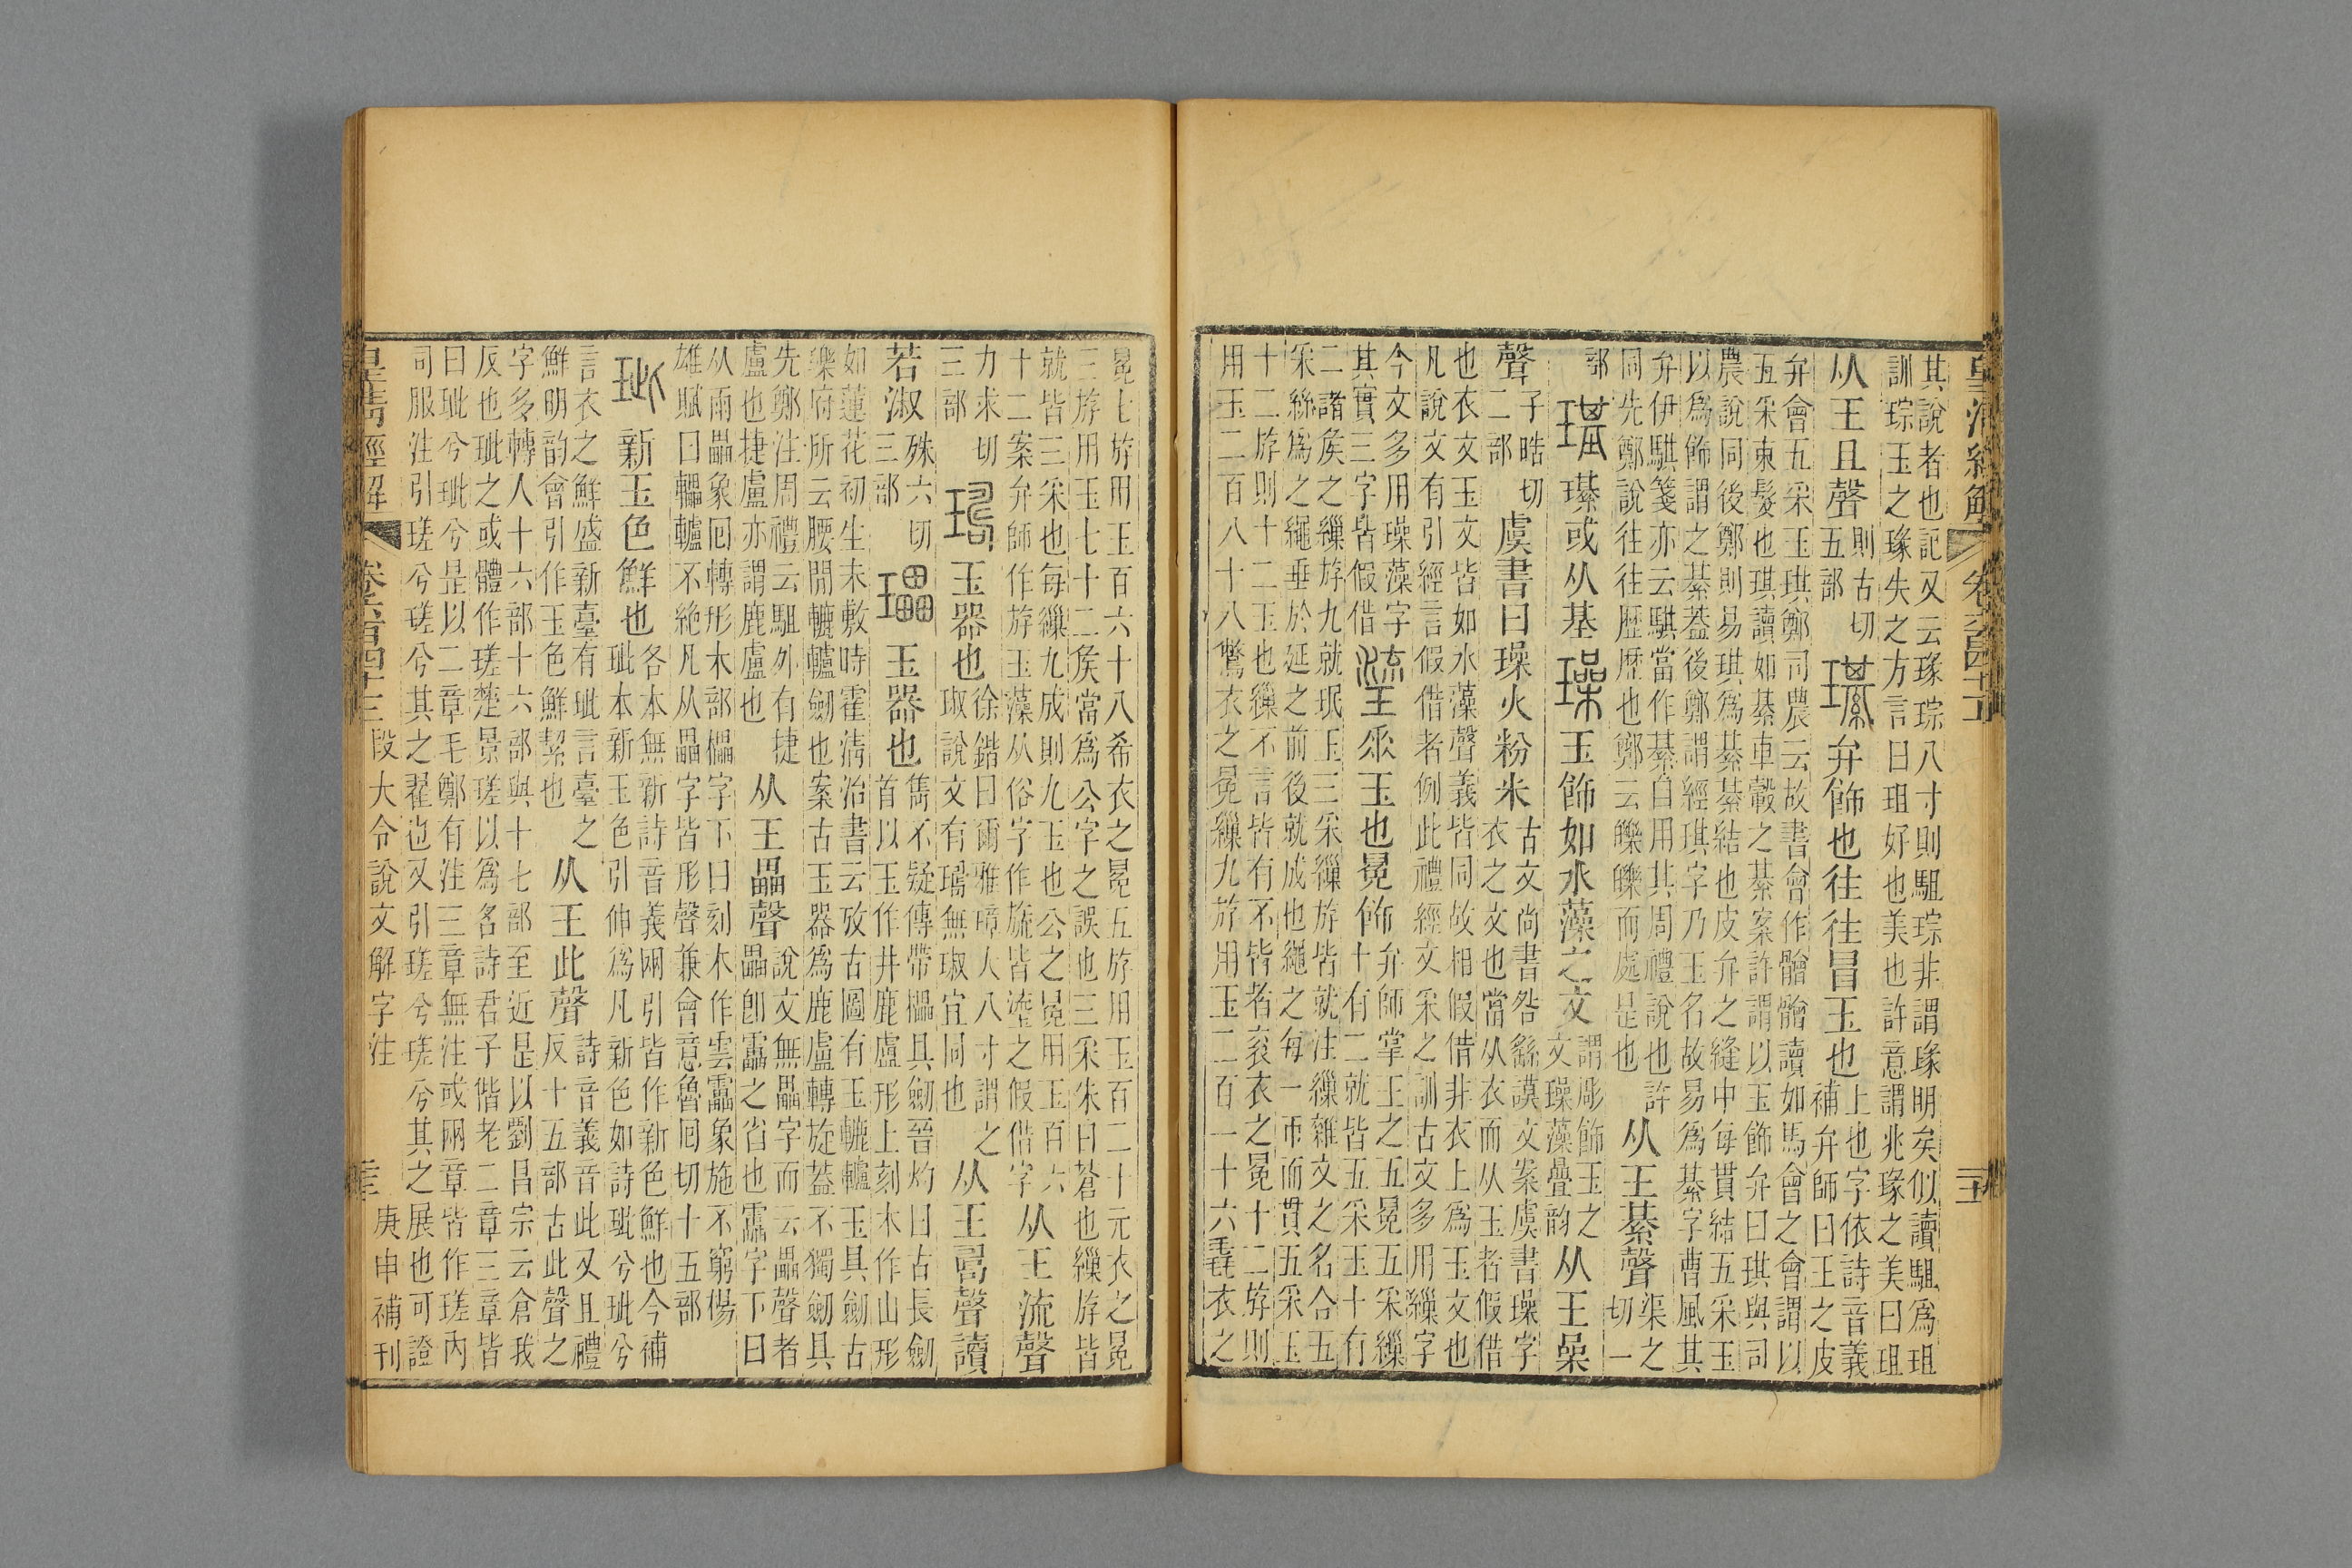 皇清經解
其說者也記又云瑑琮八寸則駔琮非謂瑑明矣似讀駔爲珇
訓琮玉之瑑失之方言曰珇好也美也許意謂兆瑑之美曰珇
从王且聲 則古切 五部 璂 弁飾也往往冒玉也 上也字依詩音義 補弁師曰王之皮
弁會五采玉琪鄭司農云故書會作䯤䯤讀如馬會之會謂以
五采束髮也琪讀如綦車轂之綦案許謂以玉飾弁曰琪與司
農說同後鄭則易琪爲綦綦結也皮弁之縫中每貫結五采玉
以爲飾謂之綦葢後鄭謂經琪字乃玉名故易爲綦字曹風其
弁伊騏箋亦云騏當作綦自用其周禮說也許
同先鄭說往往歷歷也鄭云皪皪而處是也 从王綦聲 渠之 切一
部 璂 璂或从基 璪 玉飾如水藻之文 謂彫飾玉之 文璪藻疊韵 从王喿
聲 子晧切 二部 虞書曰璪火粉米 古文尚書咎繇謨文案虞書璪字 衣之文也當从衣而从玉者假借
也衣文玉文皆如水藻聲義皆同故相假借非衣上爲玉文也
凡說文有引經言假借者例此禮經文采之訓古文多用繅字
今文多用璪藻字 其實三字皆假借 瑬 垂玉也冕飾 弁師掌王之五冕五采繅 十有二就皆五采玉十有
二諸矦之繅斿九就珉玉三采繅斿皆就注繅雜文之名合五
采絲爲之繩垂於延之前後就成也繩之每一帀而貫五采玉
十二斿則十二玉也繅不言皆有不皆者袞衣之冕十二斿則
用玉二百八十八鷩衣之冕繅九斿用玉二百一十六毳衣之
冕七斿用玉百六十八希衣之冕五斿用玉百二十元衣之冕
三斿用玉七十二矦當爲公字之誤也三采朱白蒼也繅斿皆
就皆三采也每繅九成則九玉也公之冕用玉百六
十二案弁師作斿玉藻从俗字作旒皆瑬之假借字 从王流聲
力求切 三部 璹 玉器也 徐鍇曰爾雅璋大八寸謂之 琡說文有璹無琡宜同也 从王𠷎聲讀
若淑 殊六切 三部 瓃 玉器也 雋不疑傳帶櫑具劒晉灼曰古長劒 首以玉作井鹿盧形上刻木作山形
如蓮花初生未敷時霍淸治書云攷古圖有玉轆轤玉具劒古
樂府所云腰閒轆轤劒也案古玉器爲鹿盧轉旋葢不獨劒具
先鄭注周禮云駔外有捷
盧也捷盧亦謂鹿盧也 从王畾聲 說文無畾字而云畾聲者 畾卽靁之省也靁字下曰
从雨畾象回轉形木部櫑字下曰刻木作雲靁象施不窮傷
雄賦曰轠轤不絶凡从畾字皆形聲兼會意魯回切十五部
玼 新玉色鮮也 各本無新詩音義兩引皆作新色鮮也今補 玼本新玉色引伸爲凡新色如詩玼兮玼兮
言衣之鮮盛新臺有玼言臺之
鮮明韵會引作玉色鮮絜也 从王此聲 詩音義音此又且禮 反十五部古此聲之
字多轉人十六部十六部與十七部至近是以劉昌宗云倉我
反也玼之或體作瑳楚景瑳以爲名詩君子偕老二章三章皆
曰玼兮玼兮是以二章毛鄭有注三章無注或兩章皆作瑳內
司服注引瑳兮瑳兮其之翟也又引瑳兮瑳兮其之展也可證
皇淸經解 卷六百四十一 段大令說文解字注 庚申補刊